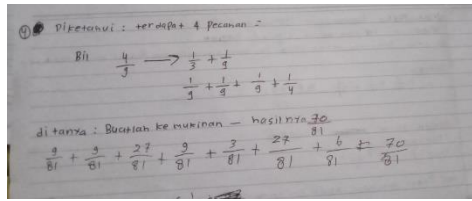 ④ Diketahui : terdapat 4 Pecahan =
Bil 4/9 → 1/3 + 1/9
1/9 + 1/9 + 1/9 + 1/4
ditanya : Buatlah kemukinan - hasilnya 70/81
9/81 + 9/81 + 27/81 + 9/81 + 3/81 + 27/81 + 6/81 = 70/81